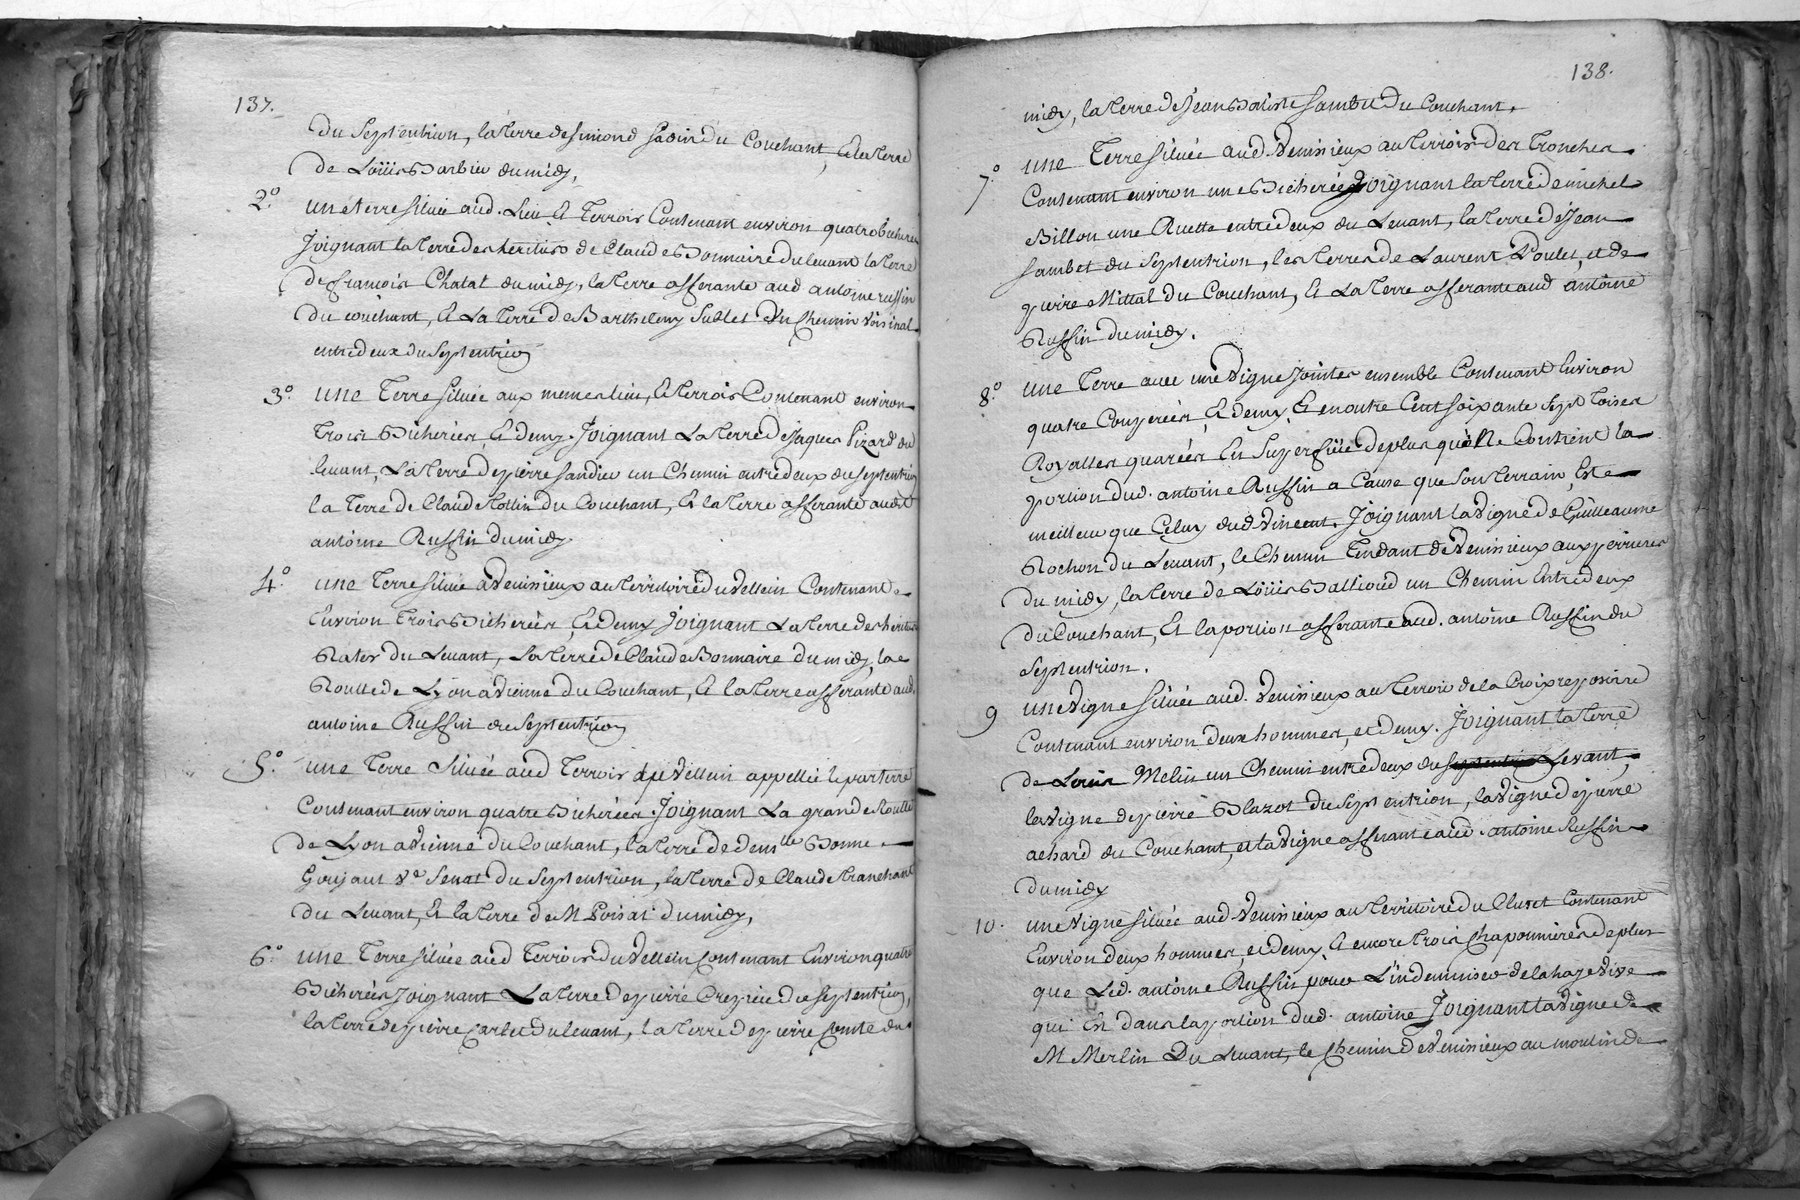 137.
du Septentrion, la terre de simond du Couchant, Et la terre
de Loüis Barbier du midy,
2.° une terre située aud. Lieu & Terroir Contenant environ quatre bicherées
Joignant la terre des heritiers de Claude Bonnaire du levant la terre
de francois Chatat du midy, la terre afferante aud antoine russin
du couchant, & La terre de Barthelemy Sublet Un Chemin Voisinal
entredeux du Septentrion
3.° une Terre Située aux memes lieu, & terroir Contenant environ
trois Bicherées, & demy. Joignant La terre de Jaques Pizard du
levant, La terre de pierre sandier un Chemin entredeux du septentrion
la Terre de Claude Collin du Couchant, & la terre afferante audit
antoine Russin du midy.
4.° une Terre située a Venissieux au territoire du Vellein Contenant
Environ trois Bicherées, & demy Joignant La terre des heritiers
Rater du Levant, La terre de Claude Bonnaire du midy, la
Routte de Lyon a Vienne du Couchant, & la terre afferante aud.
antoine Russin du Septentrion
5.° une Terre Située aud Terroir du Vellein appellée le parterre
Contenant environ quatre Bicherées. Joignant La grande Routte
de Lyon a Vienne du Couchant, la terre de dem.lle Bonne
Goujaut v.e Senat du Septentrion, la terre de Claude tranchant
du Levant, & la terre de M Poisat du midy,
6.° une Terre située aud Terroir du Vellein Contenant Environ quatre
Bicherées Joignant La terre de pierre Crepier du Septentrion,
la terre de pierre Carlet du levant, la terre de pierre Comte du
138.
midy, la terre de Jean Batiste sambet du Couchant.
7.° une Terre située aud. Venissieux au terroir des Tronches
Contenant environ une Bicherée Joignant la terre de michel
Billon une Ruette entredeux du Levant, la terre de Jean
sambet du Septentrion, les terres de Laurent Poulet, et de
pierre Mittal du Couchant, & La terre afferante aud antoine
Russin du midy.
8.° une Terre avec une Vigne Jointes ensemble Contenant Environ
quatre Coupées, & demy, & en outre Cent soixante Sept Toises
Royalles quarées En Superficie de plus qu'elle Contient la
portion dud. antoine Russin a Cause que Son terrain Est
meilleur que Celuy dud Vincent. Joignant la Vigne de Guilleaume
Rochon du Levant, le Chemin Tendant de Venissieux aux perrieres
du midy, la terre de Loüis Balliod un Chemin Entredeux
du Couchant, Et la portion afferante aud. antoine Russin du
Septentrion.
9 une Vigne située aud. Venissieux au Terroir de la Croix
Contenant environ deux hommes, et demy. Joignant la terre
de Louis Melin un Chemin entredeux du septentrion Levant,
la Vigne de pierre Blazot du Septentrion, la Vigne de pierre
achard du Couchant, et la Vigne afferante aud. antoine Russin
du midy
10. une Vigne située aud. Venissieux au territoire du Cluset Contenant
Environ deux hommes, et demy, & encore trois Chaponnieres de plus
que Led. antoine Russin pour L'indemniser de la haye Vive
qui Est dans la portion dud. antoine Joignant la Vigne de
M Merlin Du Levant, le Chemin de Venissieux au moulin de